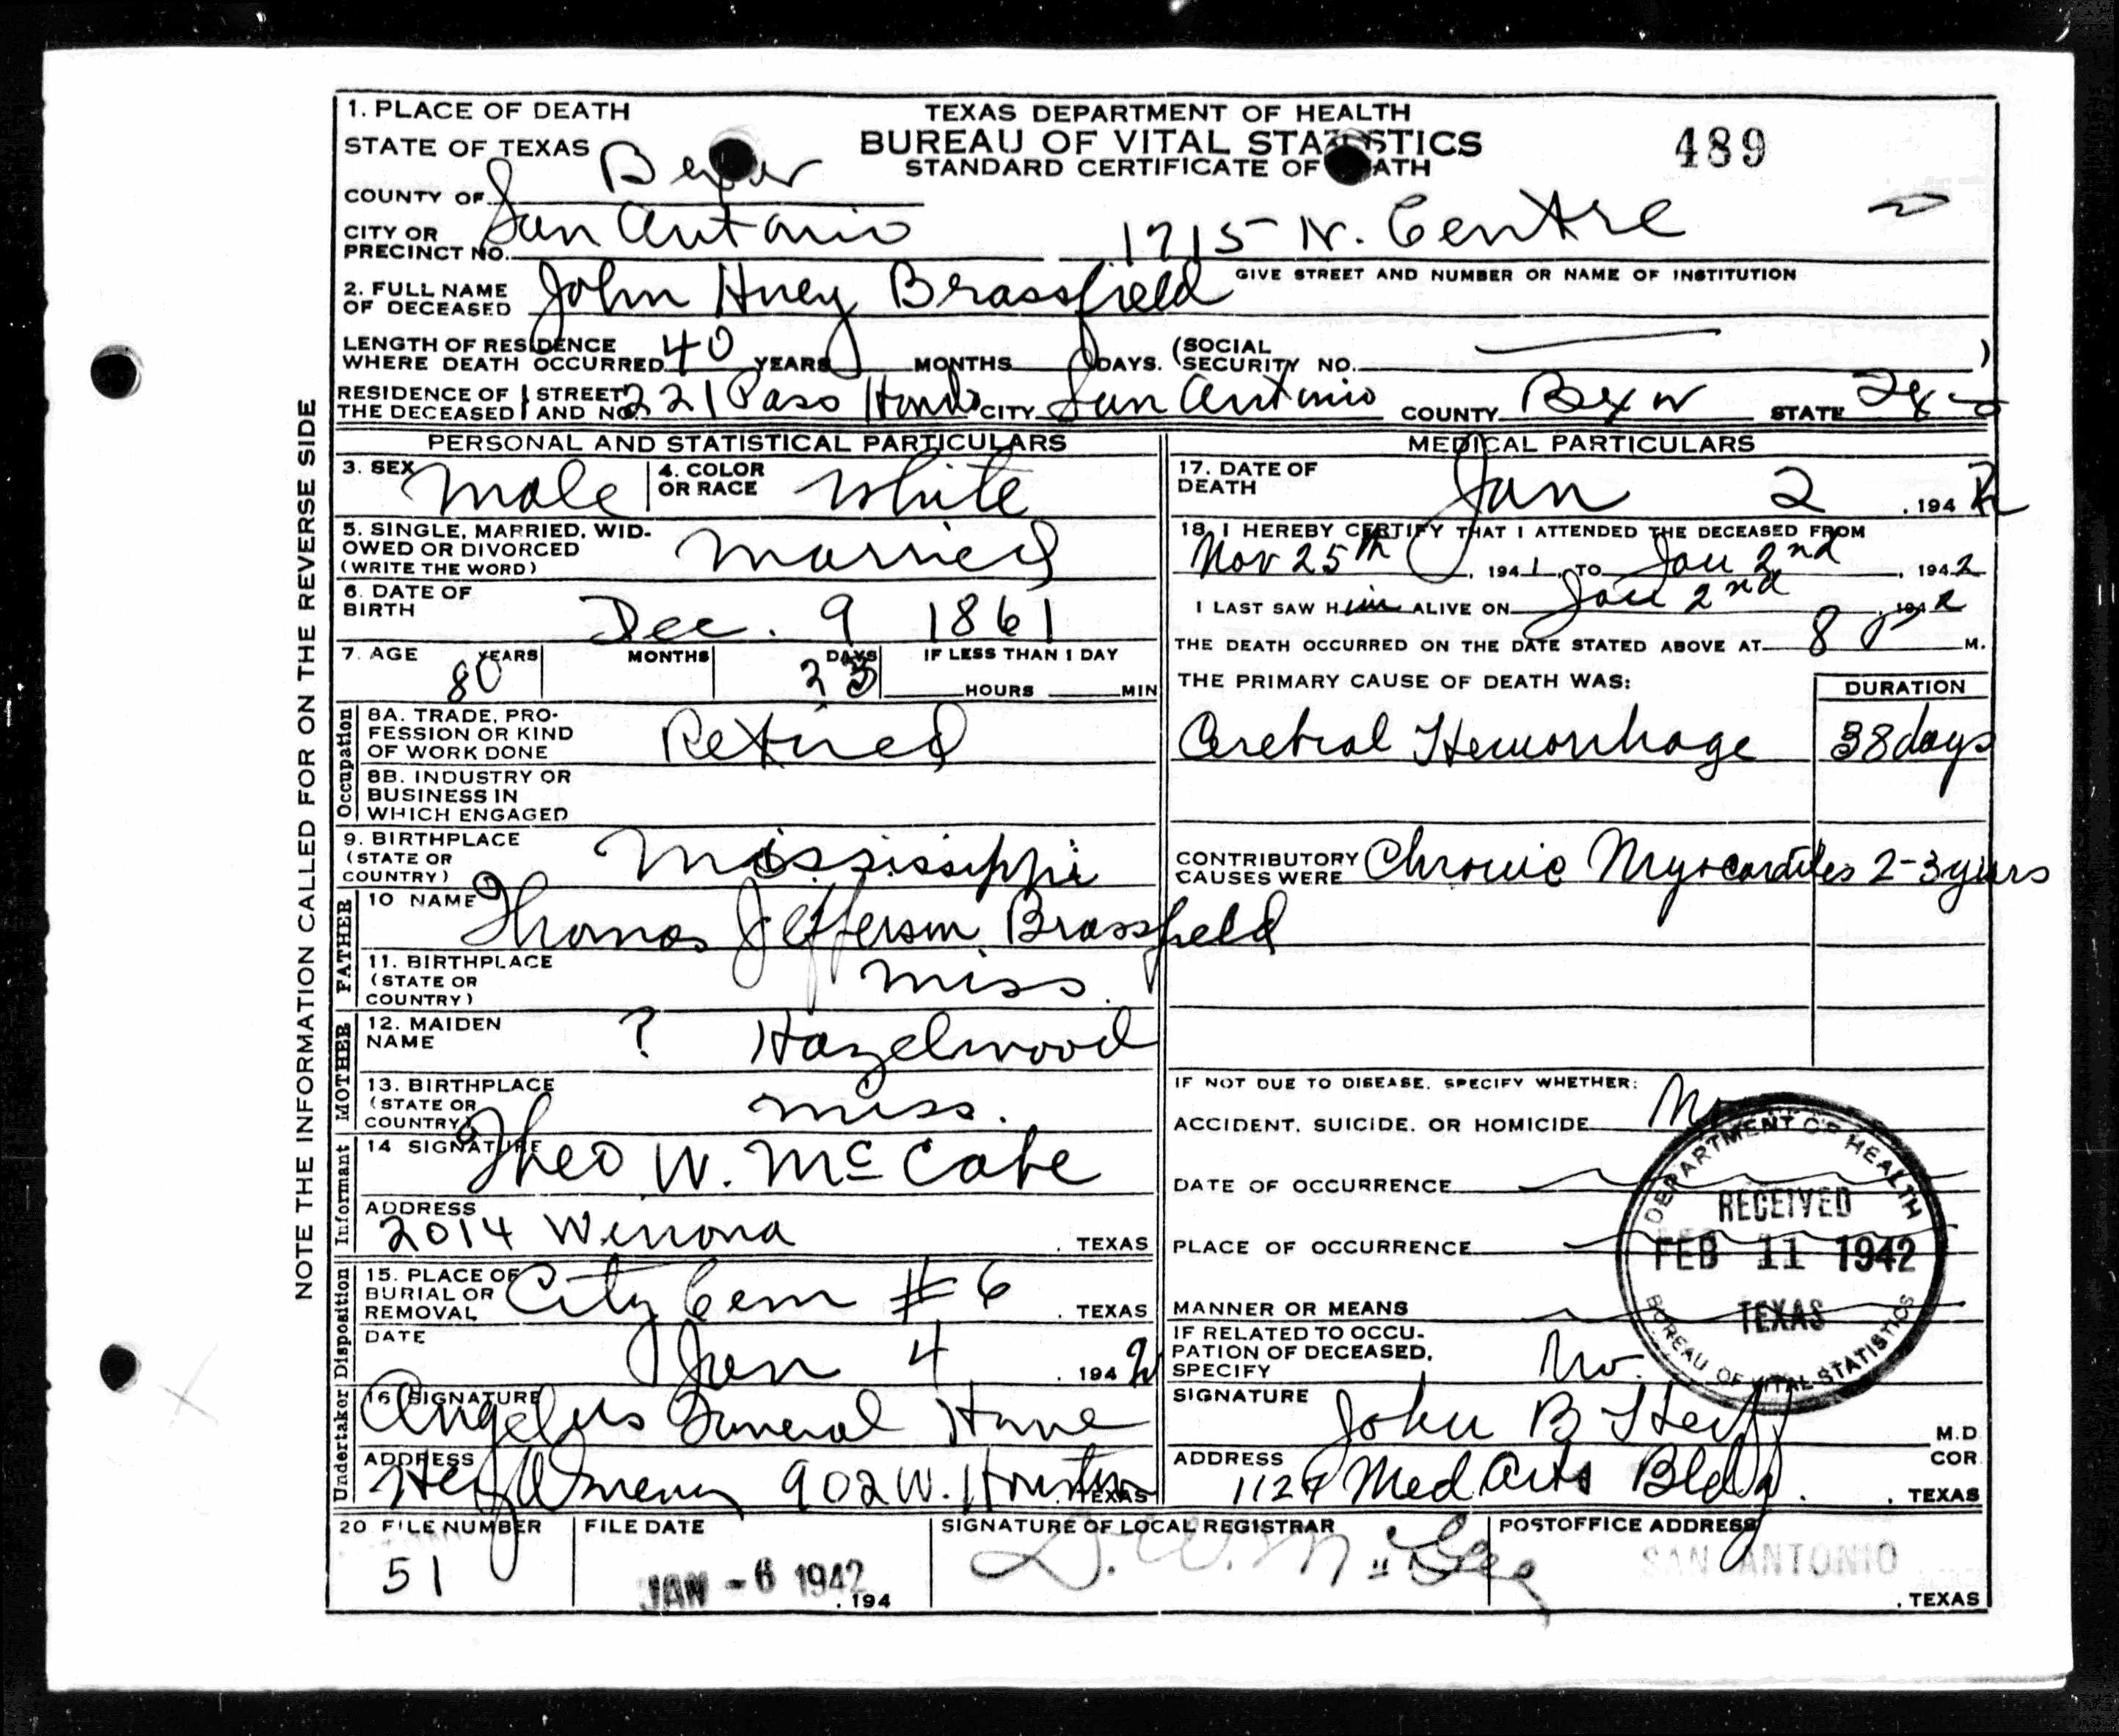 1. PLACE OF DEATH
TEXAS DEPARTMENT OF HEALTH
BUREAU OF VITAL STATISTICS
STANDARD CERTIFICATE OF DEATH
489
STATE OF TEXAS
COUNTY OF Bexar
CITY OR PRECINCT NO. San Antonio 1215 N. Centre
GIVE STREET AND NUMBER OR NAME OF INSTITUTION
2. FULL NAME OF DECEASED John Huey Brassfield
LENGTH OF RESIDENCE WHERE DEATH OCCURRED 40 YEARS MONTHS DAYS. (SOCIAL SECURITY NO. )
RESIDENCE OF THE DECEASED STREET AND NO. 221 Paso Hondo CITY San Antonio COUNTY Bexar STATE
PERSONAL AND STATISTICAL PARTICULARS
3. SEX Male 4. COLOR OR RACE White
5. SINGLE, MARRIED, WIDOWED OR DIVORCED (WRITE THE WORD) Married
6. DATE OF BIRTH Dec. 9 1861
7. AGE 80 YEARS MONTHS 23 DAYS IF LESS THAN 1 DAY HOURS MIN
Occupation
8A. TRADE, PROFESSION OR KIND OF WORK DONE Retired
8B. INDUSTRY OR BUSINESS IN WHICH ENGAGED
9. BIRTHPLACE (STATE OR COUNTRY) Mississippi
FATHER
10 NAME Thomas Jefferson Brassfield
11. BIRTHPLACE (STATE OR COUNTRY) Miss.
MOTHER
12. MAIDEN NAME ? Hazelwood
13. BIRTHPLACE (STATE OR COUNTRY) Miss.
Informant
14 SIGNATURE Theo W. McCabe
ADDRESS 2014 Winona . TEXAS
Disposition
15. PLACE OF BURIAL OR REMOVAL City Cem # 6 . TEXAS
DATE Jan 4 . 1942
Undertaker
16 SIGNATURE Angelus Funeral Home
ADDRESS 902 W. Houston TEXAS
MEDICAL PARTICULARS
17. DATE OF DEATH Jan 2 . 1942
18. I HEREBY CERTIFY THAT I ATTENDED THE DECEASED FROM
Nov 25th , 1941, TO Jan 2nd , 1942
I LAST SAW Him ALIVE ON Jan 2nd , 1942
THE DEATH OCCURRED ON THE DATE STATED ABOVE AT 8 P M.
THE PRIMARY CAUSE OF DEATH WAS: DURATION
Cerebral Hemorrhage 38 days
CONTRIBUTORY CAUSES WERE Chronic Myocarditis 2-3 years
IF NOT DUE TO DISEASE, SPECIFY WHETHER:
ACCIDENT, SUICIDE, OR HOMICIDE No
DATE OF OCCURRENCE
PLACE OF OCCURRENCE
MANNER OR MEANS
IF RELATED TO OCCUPATION OF DECEASED, SPECIFY No.
DEPARTMENT OF HEALTH
RECEIVED
FEB 11 1942
TEXAS
BUREAU OF VITAL STATISTICS
SIGNATURE John B M.D
COR
ADDRESS 1127 Med Arts Bldg. . TEXAS
20 FILE NUMBER 51
FILE DATE JAN - 6 1942 , 194
SIGNATURE OF LOCAL REGISTRAR
POSTOFFICE ADDRESS SAN ANTONIO , TEXAS
NOTE THE INFORMATION CALLED FOR ON THE REVERSE SIDE